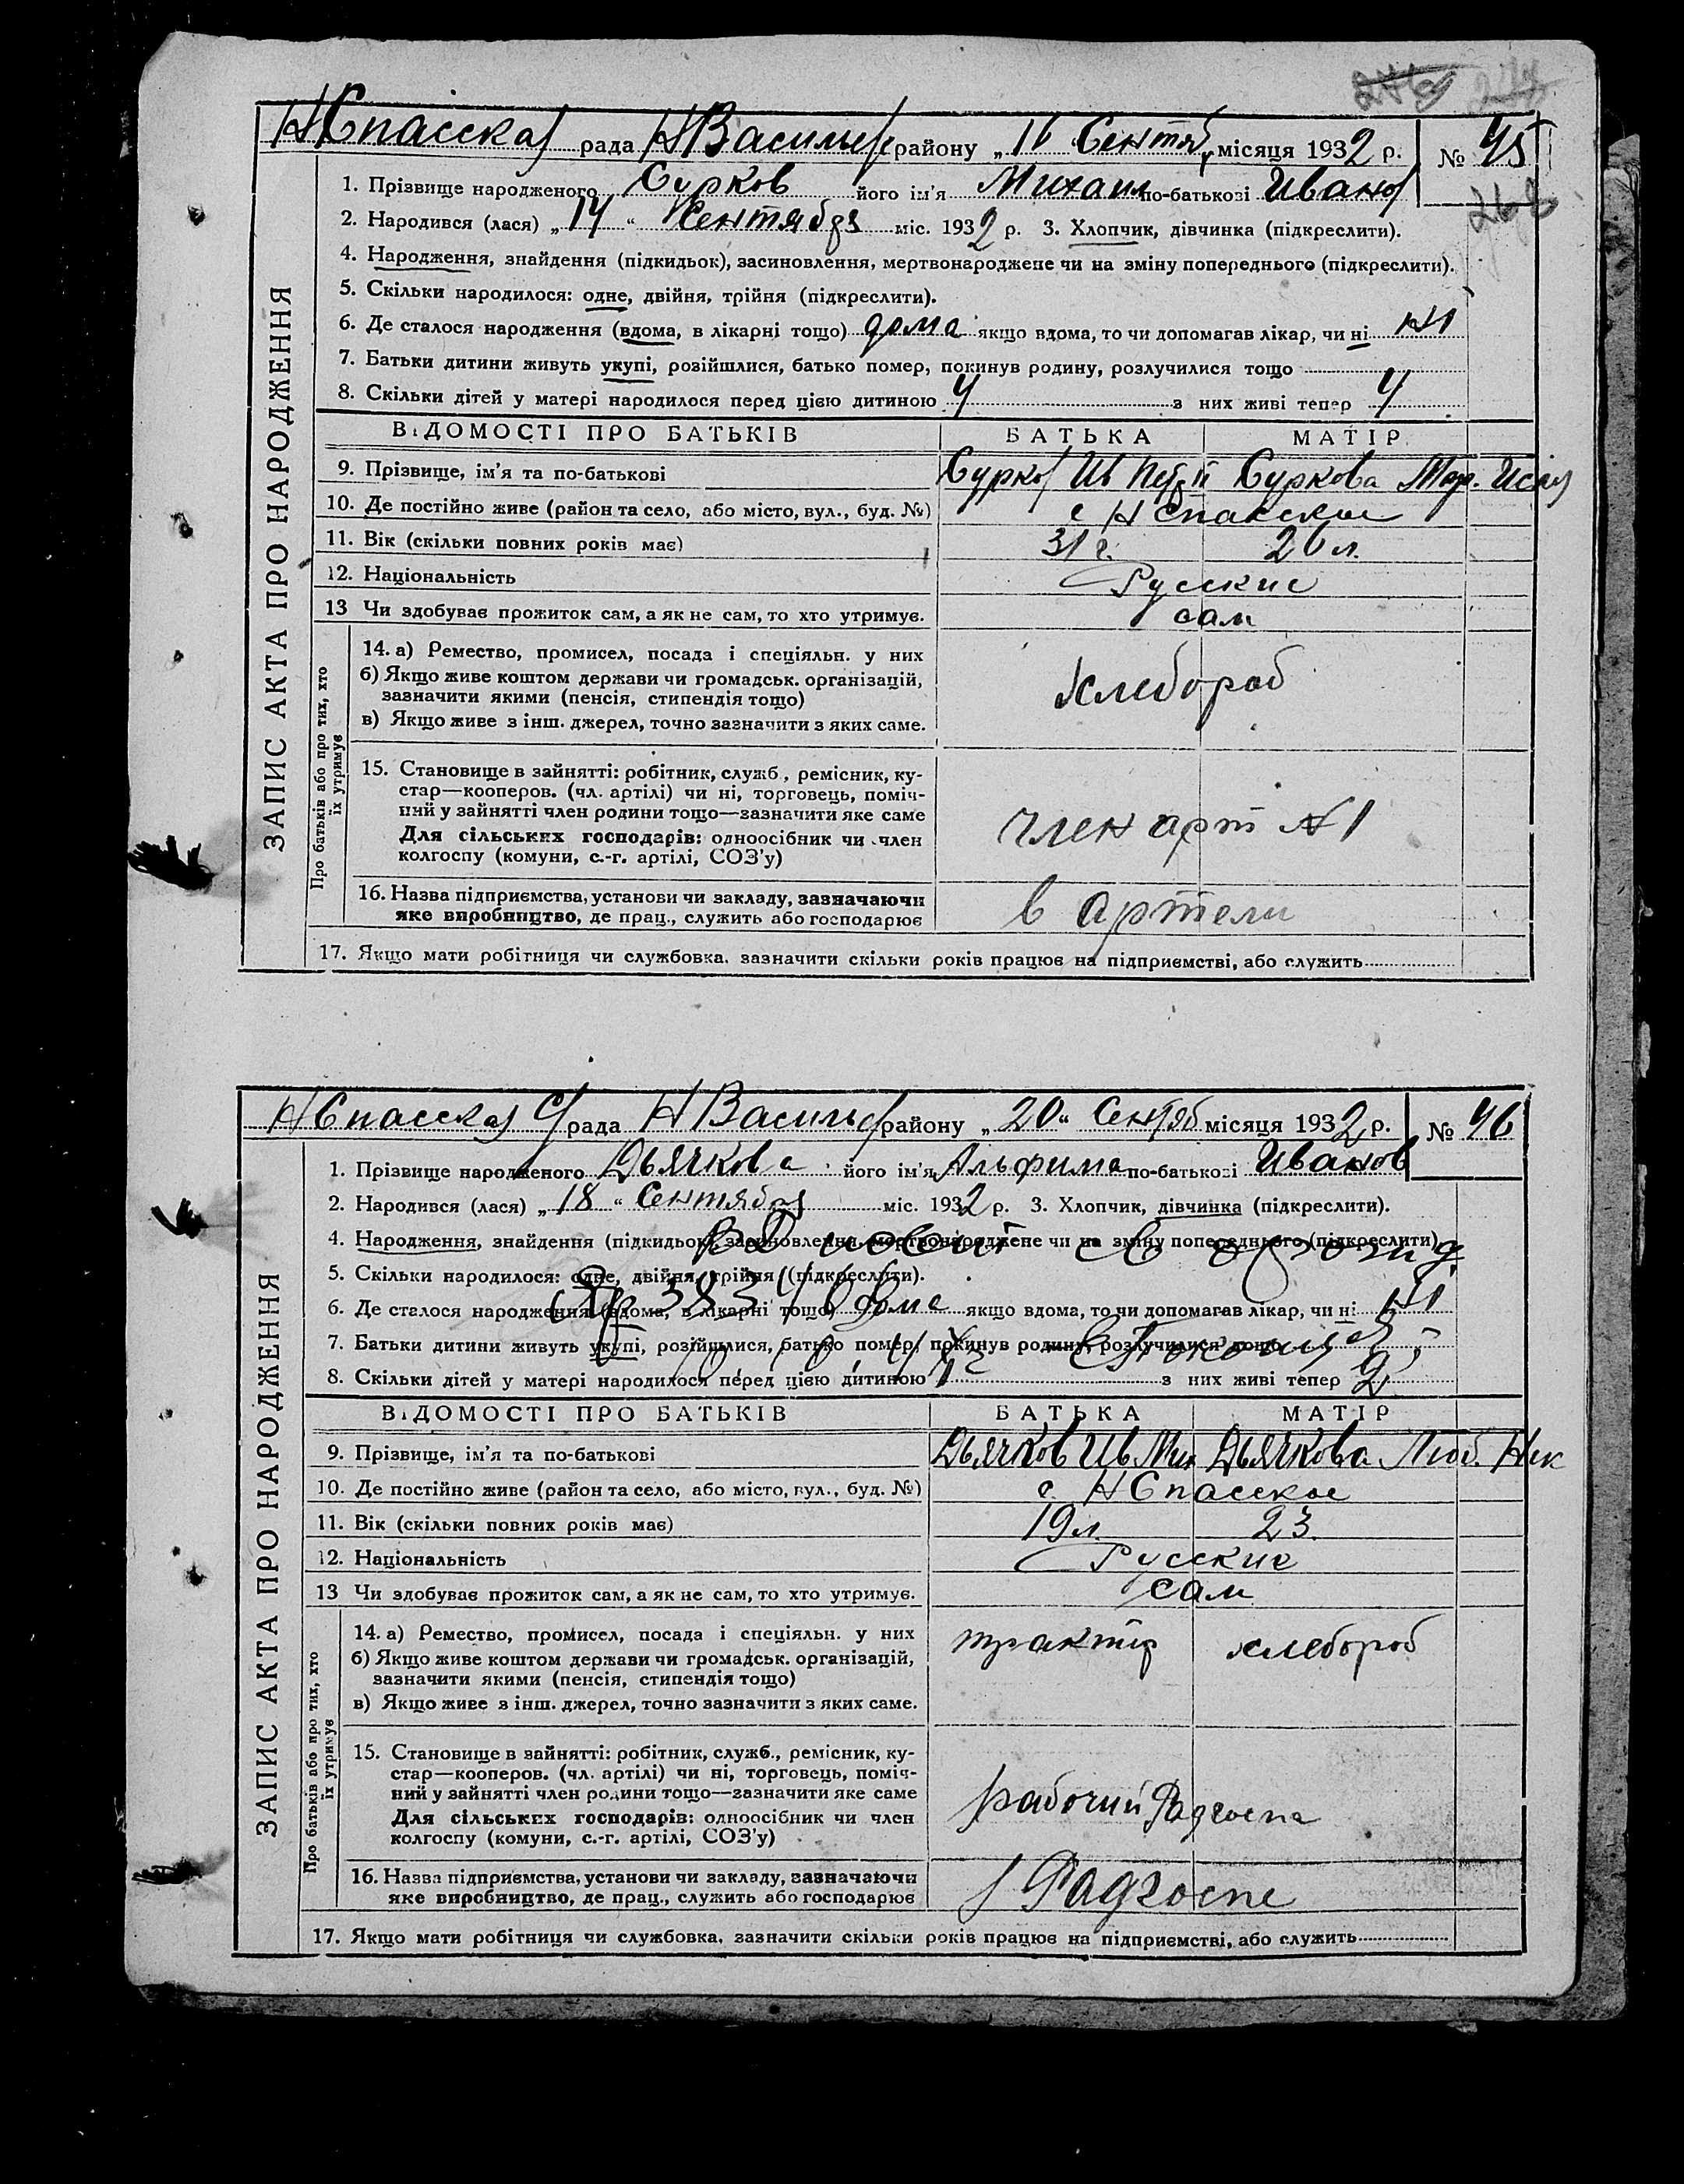 НСпасская рада НВасильев району „16 Сентяб місяця 1932 р. № 45
268
1. Прізвище народженого Сурков його ім'я Михаил по-батькові Иванов
2. Народився (лася) „14“ Сентября міс. 1932 р. 3. Хлопчик, дівчинка (підкреслити).
4. Народження, знайдення (підкидьок), засиновлення, мертвонароджене чи на зміну попереднього (підкреслити).
5. Скільки народилося: одне, двійня, трійня (підкреслити).
6. Де сталося народження (вдома, в лікарні тощо) дома якщо вдома, то чи допомагав лікар, чи ні ні
7. Батьки дитини живуть укупі, розійшлися, батько помер, покинув родину, розлучилися тощо
8. Скільки дітей у матері народилося перед цією дитиною 4 з них живі тепер 4
ВІДОМОСТІ ПРО БАТЬКІВ БАТЬКА МАТІР
9. Прізвище, ім'я та по-батькові Сурков Ив Суркова Мар.
10. Де постійно живе (район та село, або місто, вул., буд. №) с НСпасское
11. Вік (скільки повних років має) 31 г. 26 л.
12. Національність Русские
13 Чи здобуває прожиток сам, а як не сам, то хто утримує. сам
14. а) Ремество, промисел, посада і спеціяльн. у них
б) Якщо живе коштом держави чи громадськ. організацій,
зазначити якими (пенсія, стипендія тощо) хлебороб
в) Якщо живе з інш. джерел, точно зазначити з яких саме.
15. Становище в зайнятті: робітник, служб., ремісник, ку-
стар—кооперов. (чл. артілі) чи ні, торговець, поміч-
ний у зайнятті член родини тощо—зазначити яке саме
Для сільських господарів: одноосібник чи член
колгоспу (комуни, с.-г. артілі, СОЗ'у) член арт №1
16. Назва підприємства, установи чи закладу, зазначаючи
яке виробництво, де прац., служить або господарює в артели
17. Якщо мати робітниця чи службовка, зазначити скільки років працює на підприємстві, або служить
ЗАПИС АКТА ПРО НАРОДЖЕННЯ
Про батьків або про тих, хто
їх утримує
НСпасская с/рада НВасильев району „20“ Сентяб місяця 1932 р. № 46
1. Прізвище народженого Дьячкова його ім'я Альфима по-батькові Иванов
2. Народився (лася) „18“ Сентября міс. 1932 р. 3. Хлопчик, дівчинка (підкреслити).
4. Народження, знайдення (підкидьок), засиновлення, мертвонароджене чи на зміну попереднього (підкреслити).
5. Скільки народилося: одне, двійня, трійня (підкреслити).
6. Де сталося народження (вдома, в лікарні тощо) дома якщо вдома, то чи допомагав лікар, чи ні ні
7. Батьки дитини живуть укупі, розійшлися, батько помер, покинув родину, розлучилися тощо
8. Скільки дітей у матері народилося перед цією дитиною з них живі тепер 2
ВІДОМОСТІ ПРО БАТЬКІВ БАТЬКА МАТІР
9. Прізвище, ім'я та по-батькові Дьячков Ив Мих Дьячкова Люб. Ник
10. Де постійно живе (район та село, або місто, вул., буд. №) с. НСпасское
11. Вік (скільки повних років має) 19 л 23
12. Національність Русские
13 Чи здобуває прожиток сам, а як не сам, то хто утримує. сам
14. а) Ремество, промисел, посада і спеціяльн. у них трактир хлебороб
б) Якщо живе коштом держави чи громадськ. організацій,
зазначити якими (пенсія, стипендія тощо)
в) Якщо живе з інш. джерел, точно зазначити з яких саме.
15. Становище в зайнятті: робітник, служб., ремісник, ку-
стар—кооперов. (чл. артілі) чи ні, торговець, поміч-
ний у зайнятті член родини тощо—зазначити яке саме
Для сільських господарів: одноосібник чи член
колгоспу (комуни, с.-г. артілі, СОЗ'у) рабочий Радгоспа
16. Назва підприємства, установи чи закладу, зазначаючи
яке виробництво, де прац., служить або господарює в Радгоспе
17. Якщо мати робітниця чи службовка, зазначити скільки років працює на підприємстві, або служить
ЗАПИС АКТА ПРО НАРОДЖЕННЯ
Про батьків або про тих, хто
їх утримує